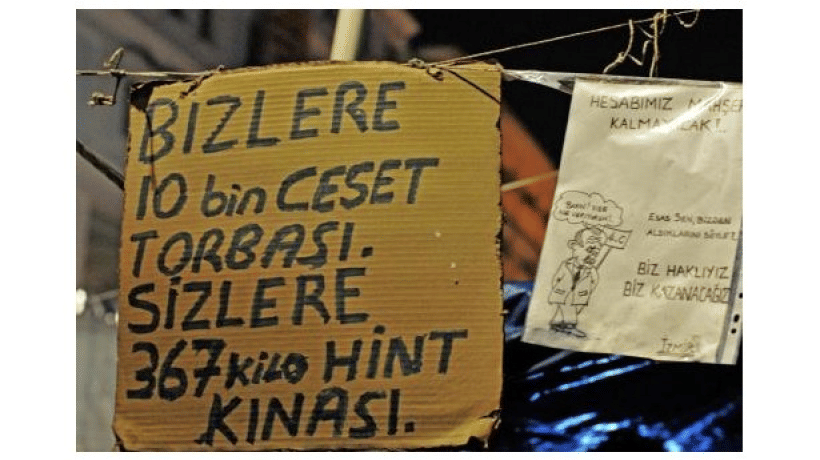 BİZLERE
10 bin CESET
TORBASI.
SİZLERE
367 KİLO HİNT
KINASI.
HESABIMIZ MAHŞER
KALMAYACAK!.
ESAS SEN, BİZDEN
ALDIKLARINI SÖYLE!
BİZ HAKLIYIZ
BİZ KAZANACAĞIZ
İZMİR